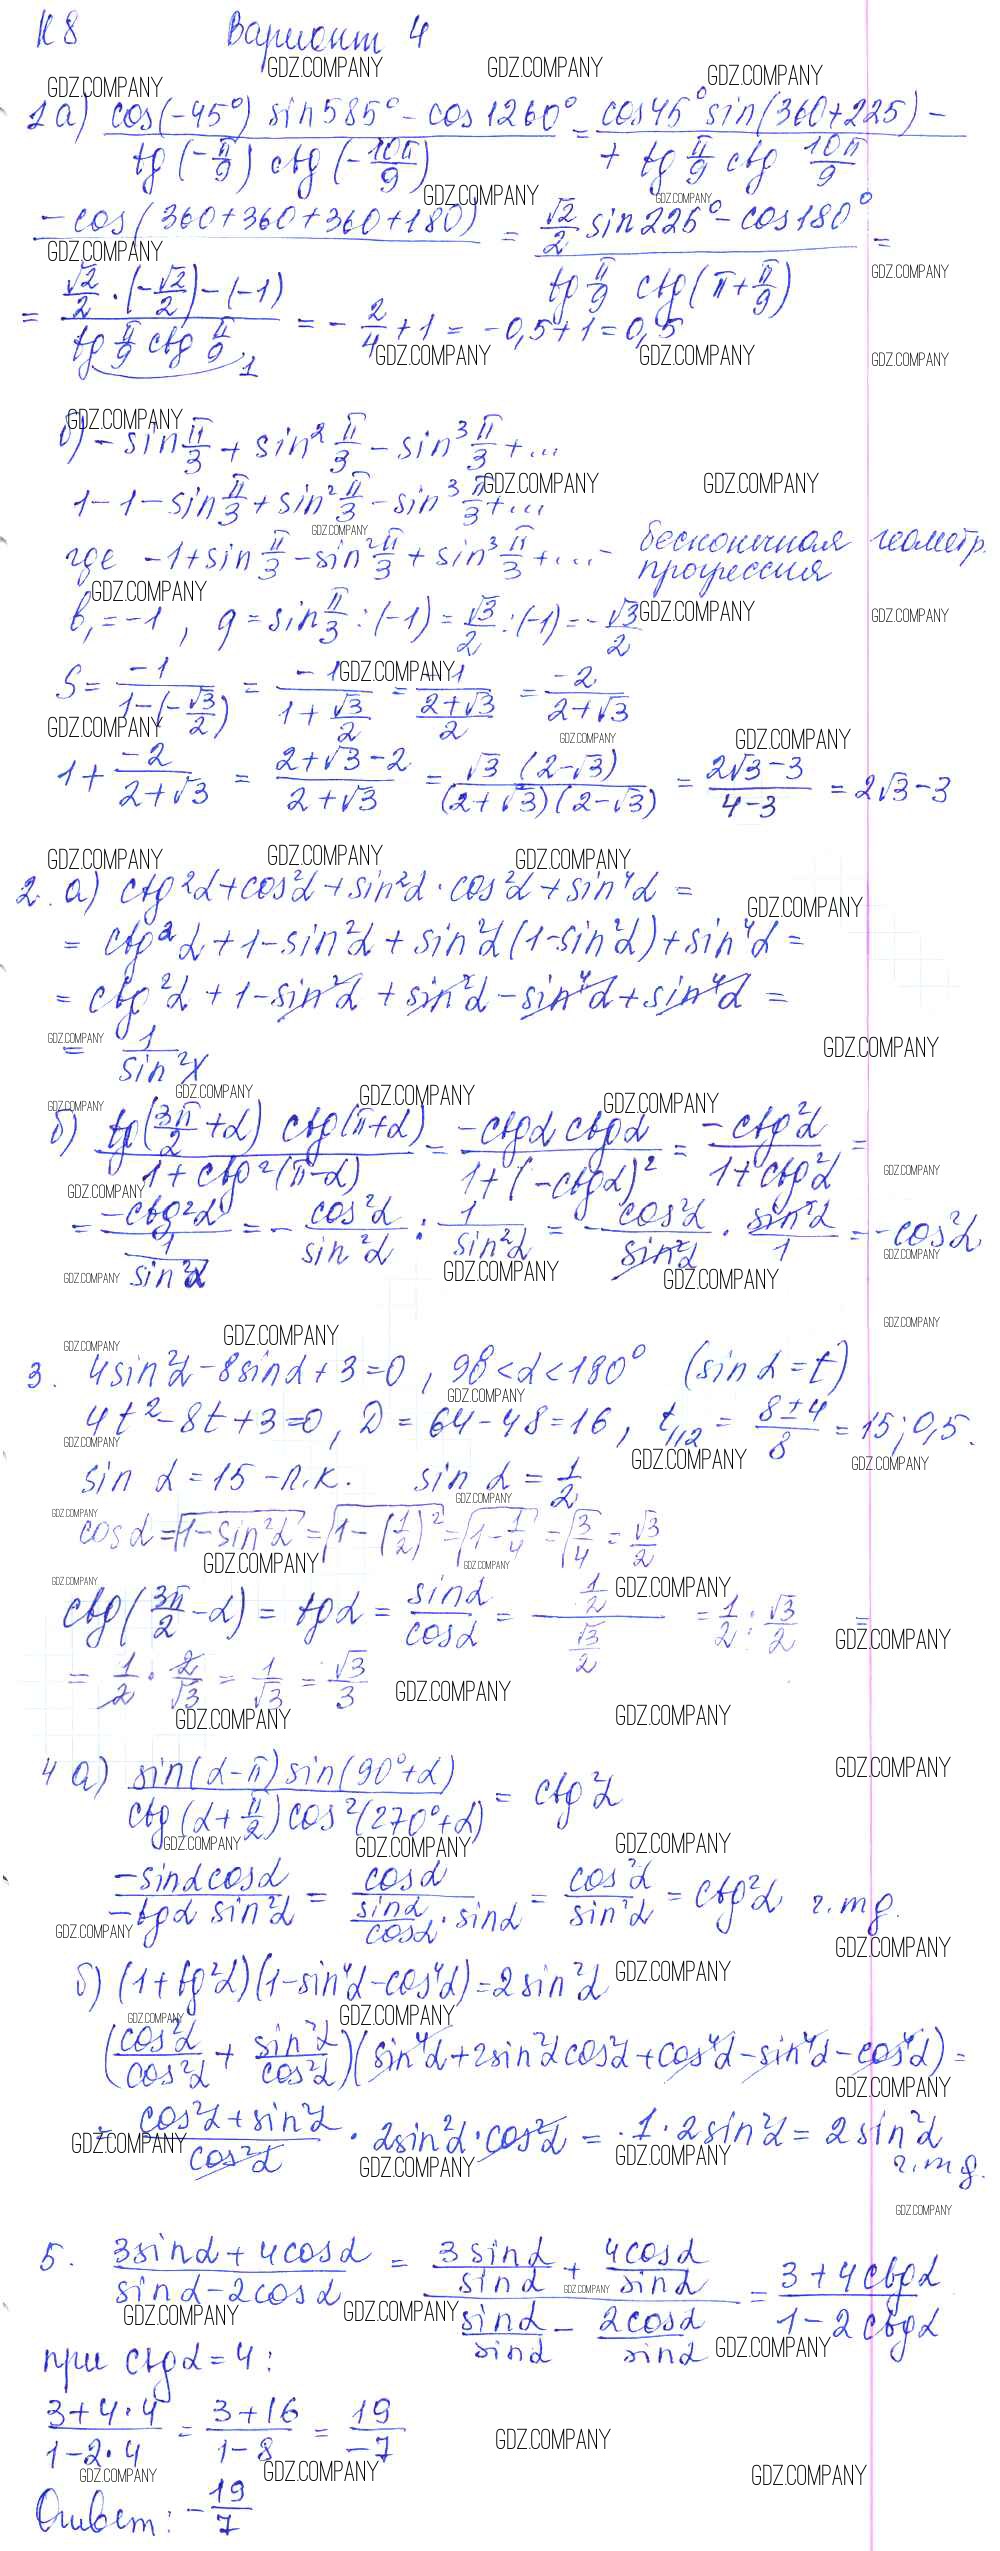 К 8 Вариант 4
1 а) cos(-45°) sin585° - cos1260° / tg(-π/9) ctg(-10π/9) = cos45° sin(360+225) - / + tg π/9 ctg 10π/9
-cos(360+360+360+180) = √2/2 sin225° - cos180° / tg π/9 ctg(π+π/9) =
= √2/2 · (-√2/2) - (-1) / tg π/9 ctg π/9 = - 2/4 + 1 = -0,5+1 = 0,5
1
б) - sin π/3 + sin² π/3 - sin³ π/3 + ...
1 - 1 - sin π/3 + sin² π/3 - sin³ π/3 + ...
где -1 + sin π/3 - sin² π/3 + sin³ π/3 + ... - бесконечная геометр.
прогрессия
b₁ = -1 , q = sin π/3 : (-1) = √3/2 : (-1) = -√3/2
S = -1 / 1-(-√3/2) = -1 / 1+√3/2 = -1 / (2+√3)/2 = -2 / 2+√3
1 + -2 / 2+√3 = 2+√3-2 / 2+√3 = √3 (2-√3) / (2+√3)(2-√3) = 2√3-3 / 4-3 = 2√3-3
2. а) ctg²α + cos²α + sin²α · cos²α + sin⁴α =
= ctg²α + 1 - sin²α + sin²α(1-sin²α) + sin⁴α =
= ctg²α + 1 - sin²α + sin²α - sin⁴α + sin⁴α =
= 1 / sin²x
б) tg(3π/2 + α) ctg(π+α) / 1+ctg²(π-α) = -ctgα ctgα / 1+(-ctgα)² = -ctg²α / 1+ctg²α =
= -ctg²α / 1/sin²α = - cos²α/sin²α : 1/sin²α = - cos²α/sin²α · sin²α/1 = -cos²α
3. 4sin²α - 8sinα + 3 = 0 , 90° < α < 180° (sin α = t)
4t² - 8t + 3 = 0 , D = 64 - 48 = 16 , t₁,₂ = 8±4 / 8 = 15; 0,5.
sin α = 15 - п.к. sin α = 1/2
cosα = √1-sin²α = √1-(1/2)² = √1-1/4 = √3/4 = √3/2
ctg(3π/2 - α) = tgα = sinα/cosα = 1/2 / √3/2 = 1/2 : √3/2 =
= 1/2 · 2/√3 = 1/√3 = √3/3
4 а) sin(α-π) sin(90°+α) / ctg(α+π/2) cos²(270°+α) = ctg²α
-sinα cosα / -tgα sin²α = cosα / sinα/cosα · sinα = cos²α/sin²α = ctg²α ч.т.д.
б) (1+tg²α)(1-sin⁴α-cos⁴α) = 2sin²α
(cos²α/cos²α + sin²α/cos²α)(sin⁴α+2sin²α cos²α+cos⁴α-sin⁴α-cos⁴α) =
= cos²α+sin²α / cos²α · 2sin²α · cos²α = 1·2sin²α = 2sin²α
ч.т.д.
5. 3sinα + 4cosα / sinα - 2cosα = 3sinα/sinα + 4cosα/sinα / sinα/sinα - 2cosα/sinα = 3+4ctgα / 1-2ctgα
при ctgα = 4:
3+4·4 / 1-2·4 = 3+16 / 1-8 = 19/-7
Ответ: -19/7
GDZ.COMPANY